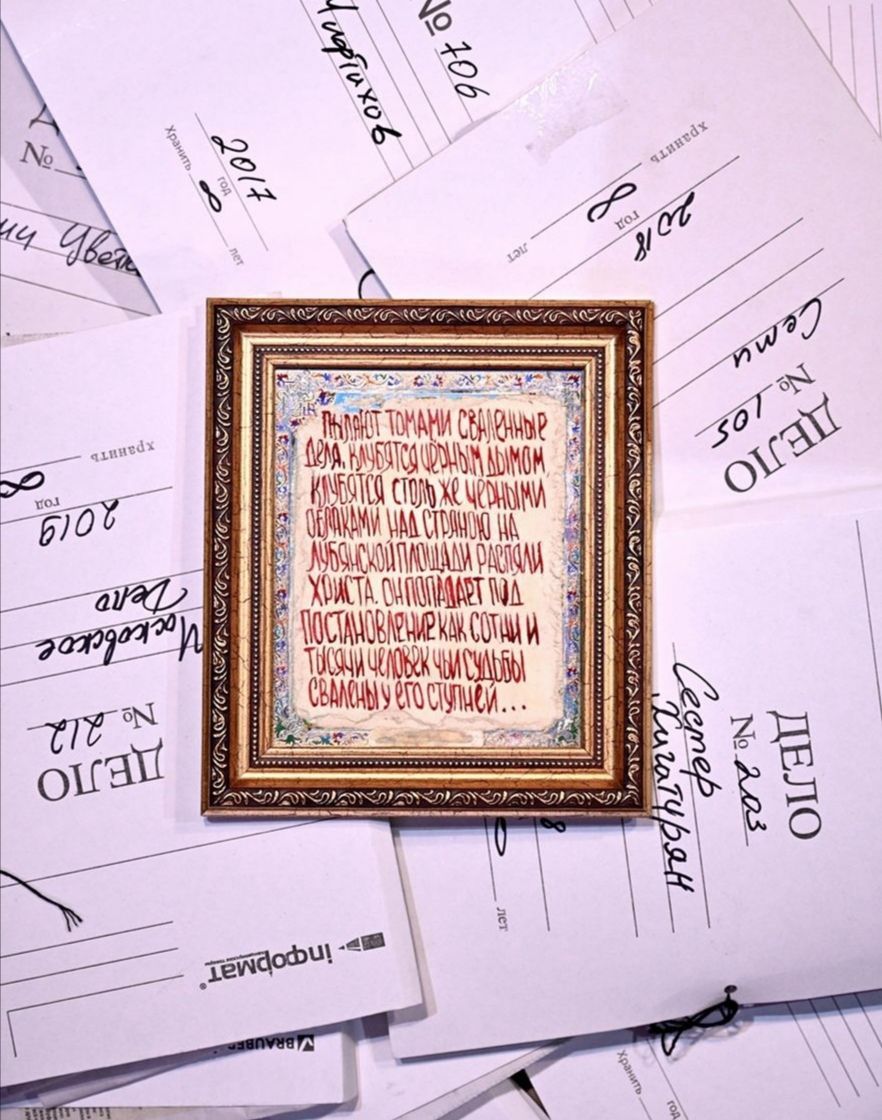 № 706
Чифтихов
2017
год
Хранить 8 лет
№
хранить
8 лет
2018 год
Сети
№ 105
ДЕЛО
ПЫЛАЮТ ТОМАМИ СВАЛЕННЫЕ
ДЕЛА, КЛУБЯТСЯ ЧЁРНЫМ ДЫМОМ
КЛУБЯТСЯ СТОЛЬ ЖЕ ЧЕРНЫМИ
ОБЛАКАМИ НАД СТРАНОЮ НА
ЛУБЯНСКОЙ ПЛОЩАДИ РАСПЯЛИ
ХРИСТА. ОН ПОПАДАЕТ ПОД
ПОСТАНОВЛЕНИЕ КАК СОТНИ И
ТЫСЯЧИ ЧЕЛОВЕК ЧЬИ СУДЬБЫ
СВАЛЕНЫ У ЕГО СТУПНЕЙ...
хранить
8
2019 год
Московское
Дело
№ 212
ДЕЛО
ДЕЛО
№ 203
Сестер
Хачатурян
8
лет
inформат®
BRAUBER
Хранить
год